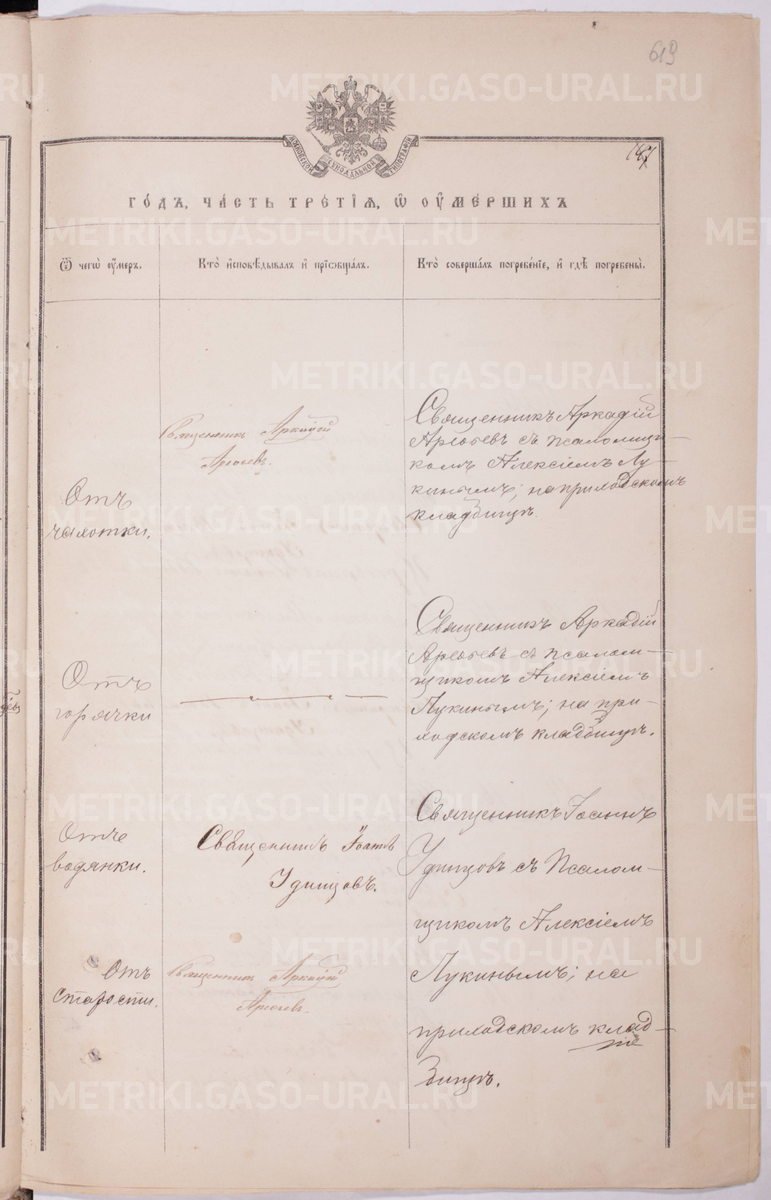 METRIKI.GASO-URAL.RU
619
СѴНОДАЛЬНОЙ
ГО́ДЪ, ЧА́СТЬ ТРЕ́ТІѦ, Ѿ ОУ҆МЕ́РШИХЪ
Ѿ чегѡ̀ ᲂу҆́меръ.
Кто̀ и҆сповѣ́дывалъ и҆ прїѡбща́лъ.
Кто̀ соверша́лъ погребе́нїе, и҆ гдѣ̀ погребены̀.
Отъ
чахотки.
Священникъ Аркадій
Священникъ Аркадій
съ псаломщи-
комъ Алексіемъ Лу-
кинымъ; на
кладбищѣ.
Отъ
горячки
Священникъ Аркадій
съ псалом-
щикомъ Алексіемъ
Лукинымъ; на при-
ходскомъ кладбищѣ.
Отъ
водянки.
Священникъ Іоаннъ
Удинцовъ.
Священникъ Іоаннъ
Удинцовъ съ Псалом-
щикомъ Алексіемъ
Лукинымъ; на
приходскомъ клад-
бищѣ.
Отъ
старости.
Священникъ Аркадій